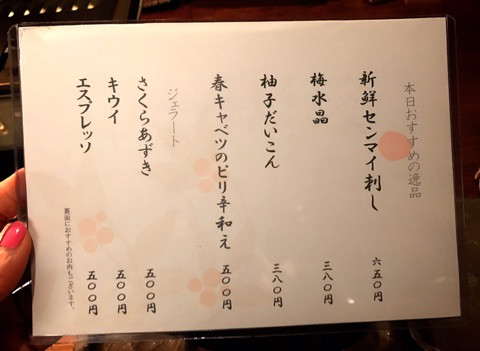 本日おすすめの逸品
新鮮センマイ刺し 六五〇円
梅水晶 三八〇円
柚子だいこん 三八〇円
春キャベツのピリ辛和え 五〇〇円
ジェラート
さくらあずき 五〇〇円
キウイ 五〇〇円
エスプレッソ 五〇〇円
裏面におすすめのお肉もございます。